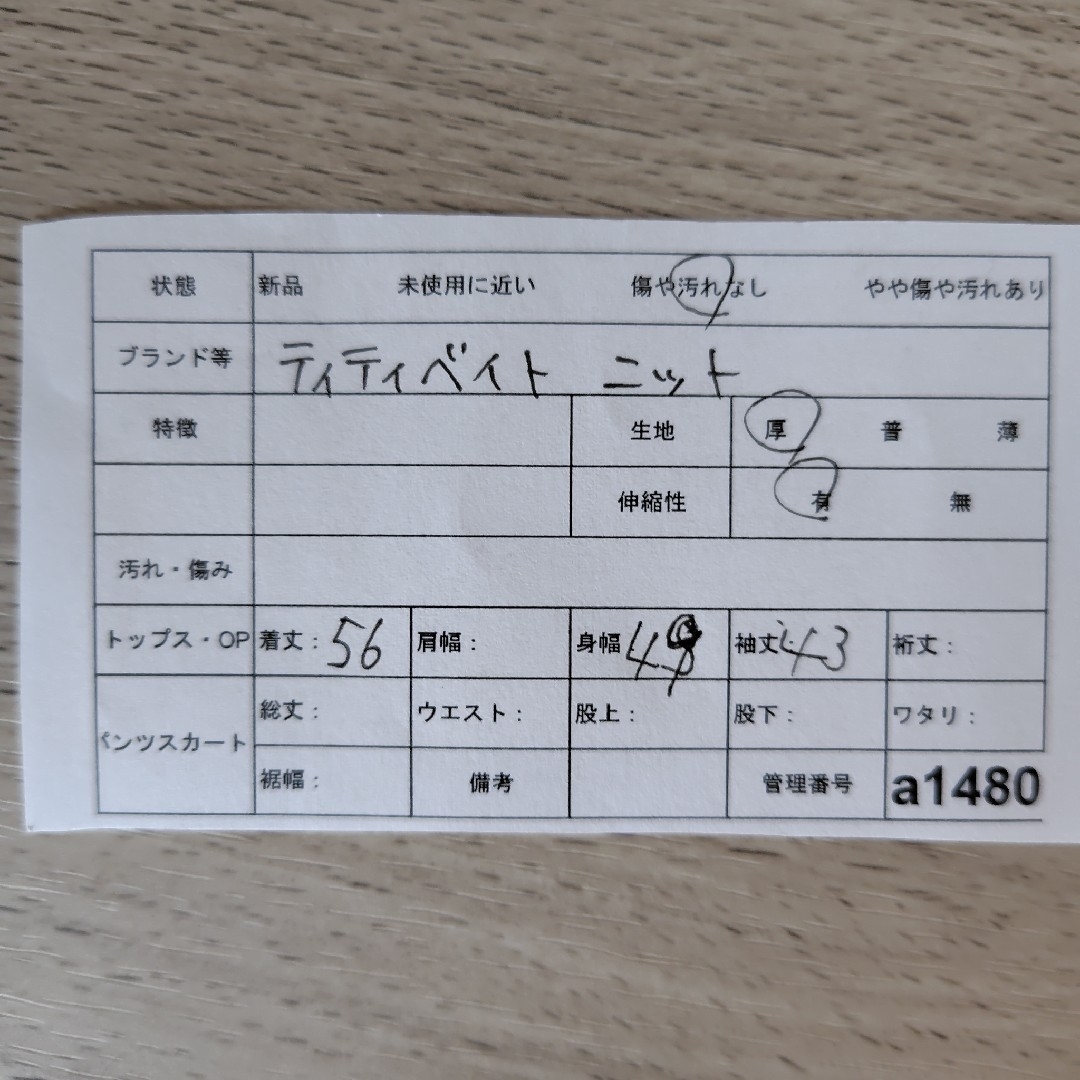 状態 新品 未使用に近い 傷や汚れなし やや傷や汚れあり
ブランド等 ティティベイト ニット
特徴 生地 厚 普 薄
伸縮性 有 無
汚れ・傷み
トップス・OP 着丈: 56 肩幅: 身幅 袖丈: 43 裄丈:
パンツスカート 総丈: ウエスト: 股上: 股下: ワタリ:
裾幅: 備考 管理番号 a1480